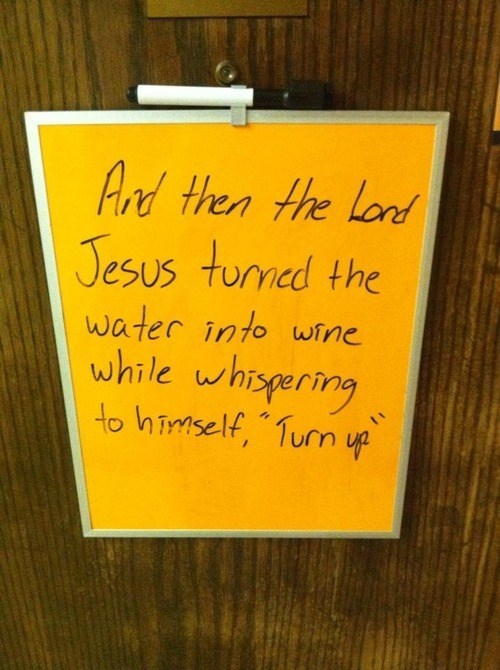 And then the Lord
Jesus turned the
water into wine
while whispering
to himself, "Turn up"